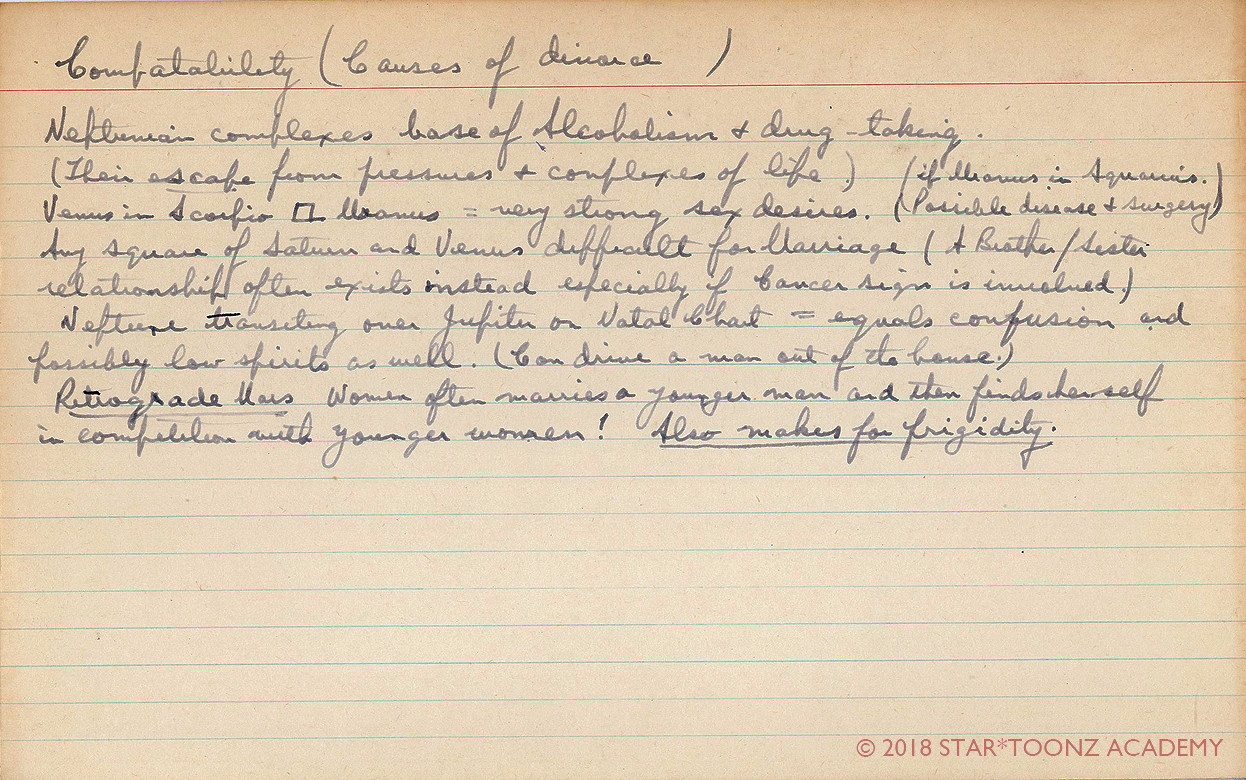 Compatability (Causes of divorce )
Neptunian complexes base of Alcoholism & drug-taking.
(Their escape from pressures & complexes of life.) (if Uranus in Aquarius.)
Venus in Scorpio □ Uranus = very strong sex desires. (Possible disease & surgery)
Any square of Saturn and Venus difficult for Marriage (A Brother/Sister
relationship often exists instead especially if Cancer sign is involved.)
Neptune transiting over Jupiter on Natal Chart = equals confusion and
possibly low spirits as well. (Can drive a man out of the house.)
Retrograde Mars Women often marries a younger man and then finds herself
in competition with younger women! Also makes for frigidity.
© 2018 STAR*TOONZ ACADEMY